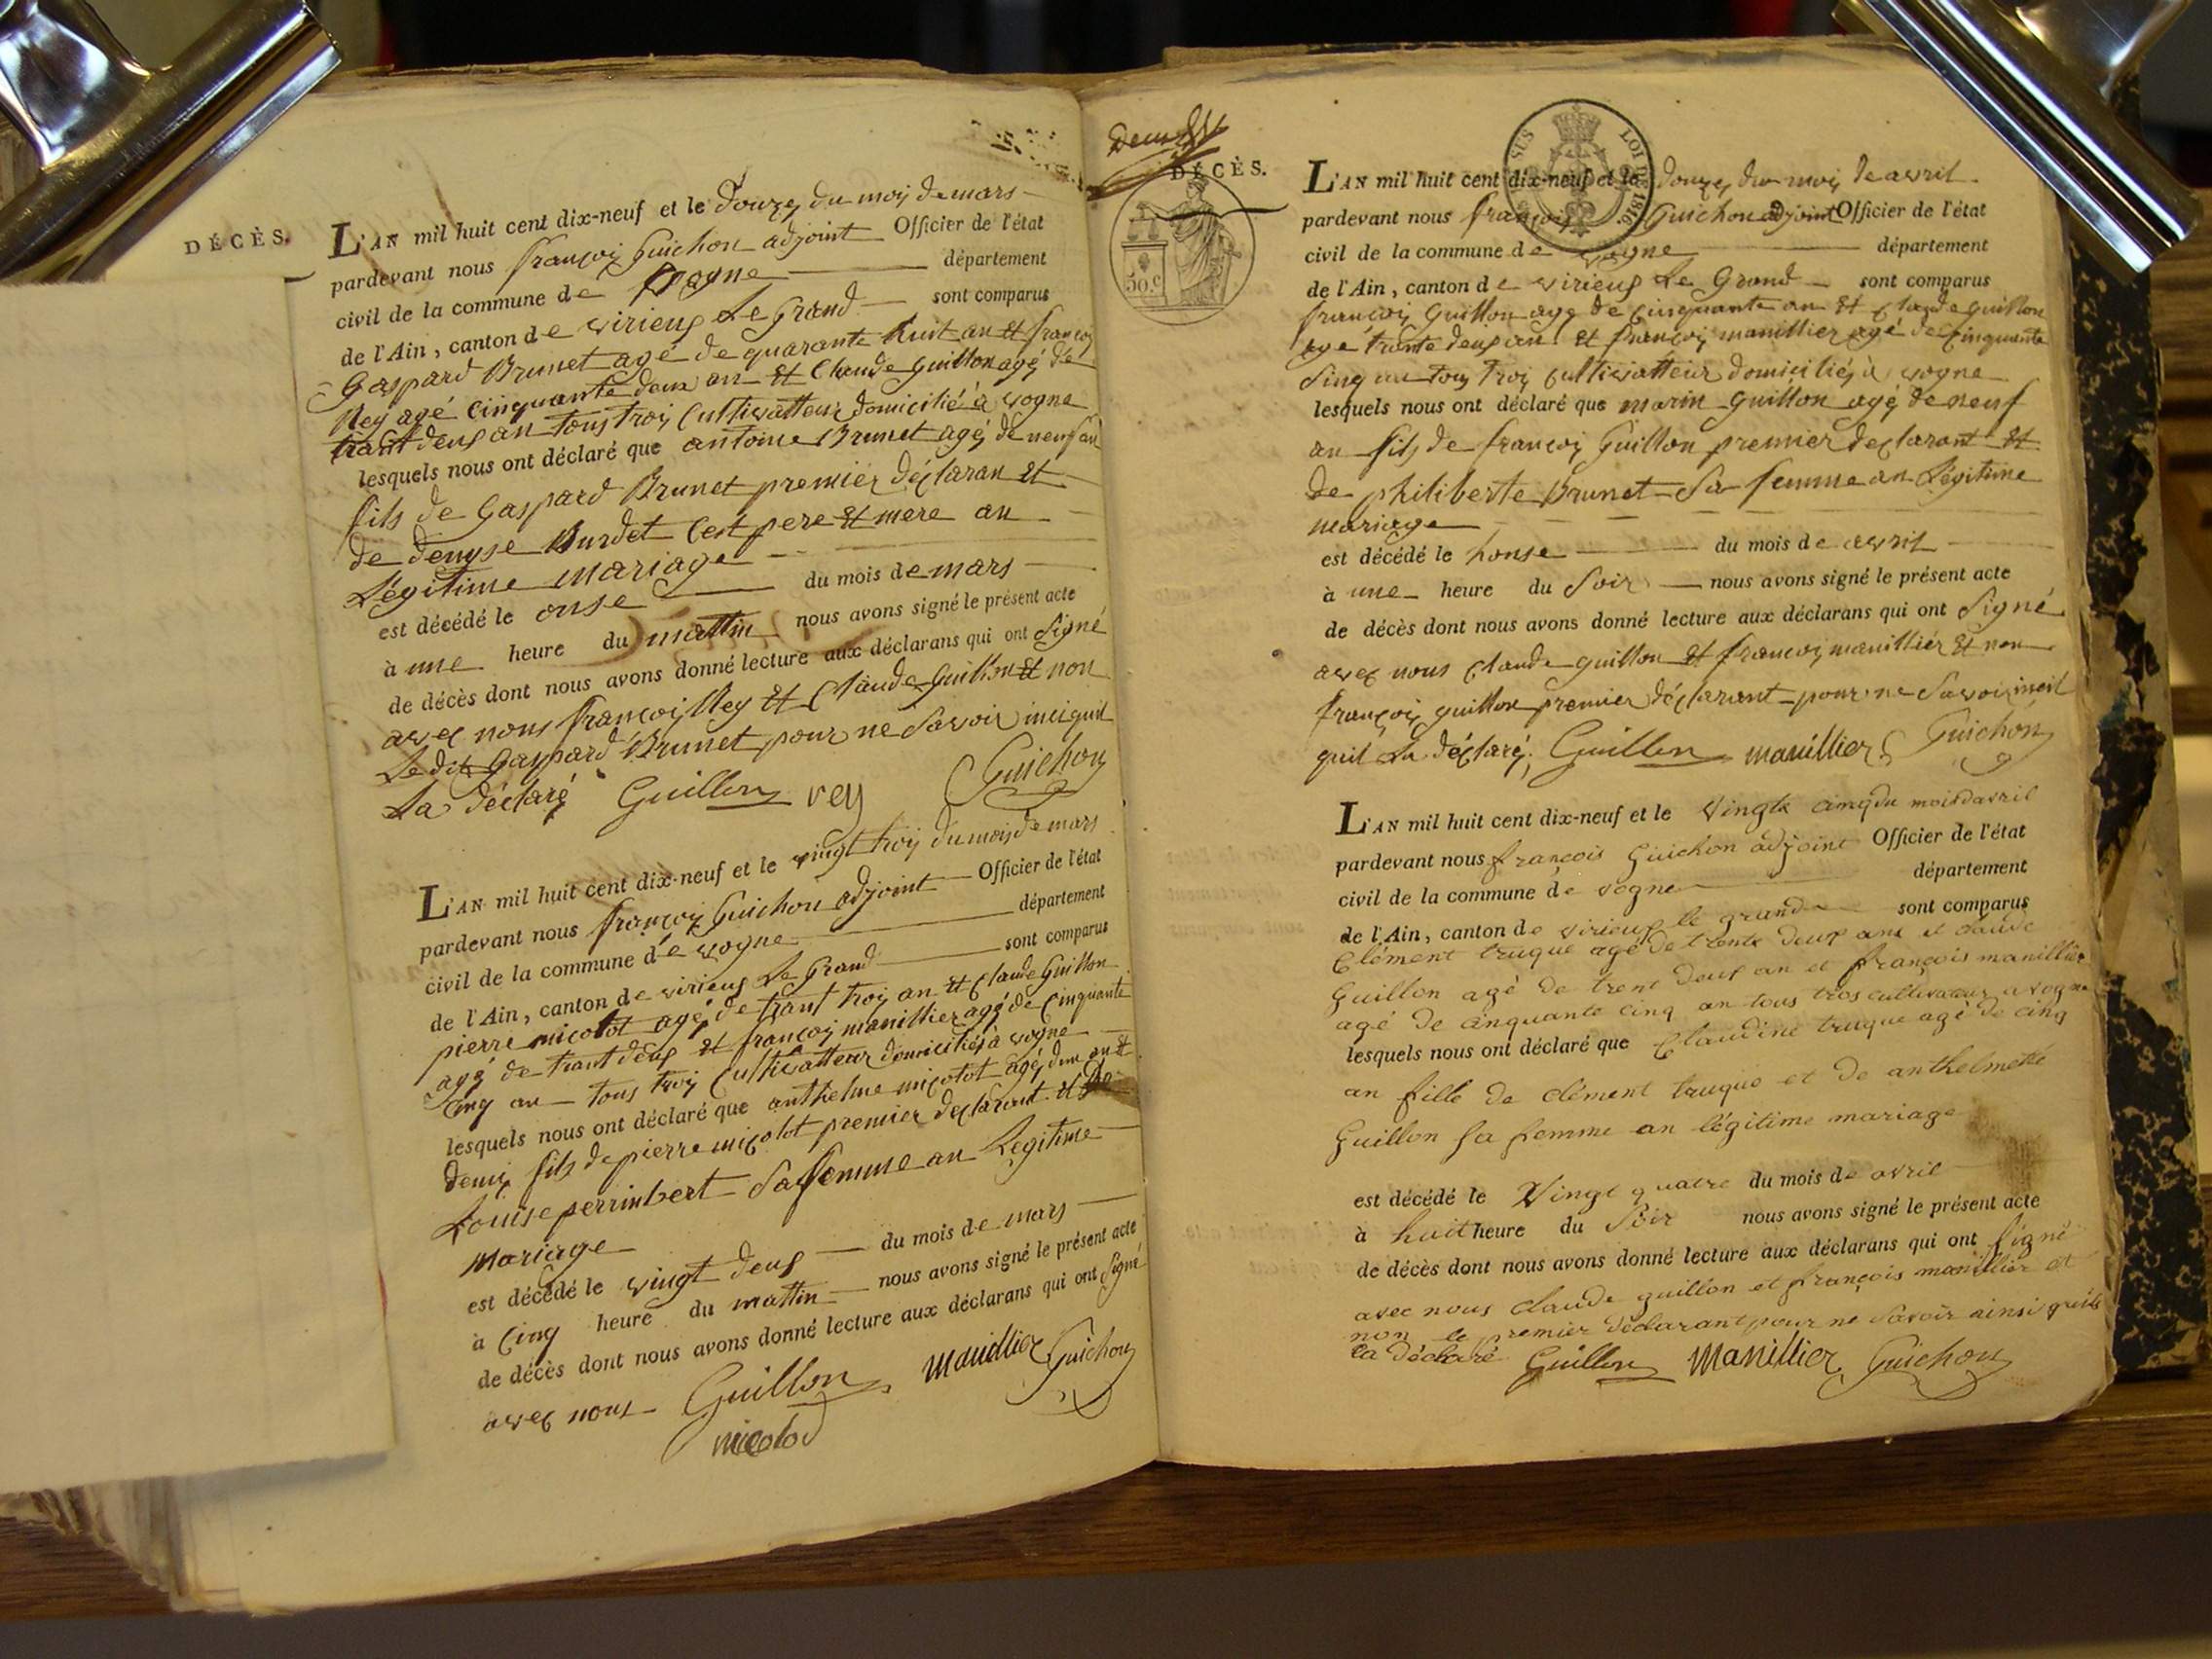 DÉCÈS.
L'AN mil huit cent dix-neuf et le douzes du mois de mars
pardevant nous françois Guichon adjoint Officier de l'état
civil de la commune de vogne département
de l'Ain, canton de virieus Le Grand sont comparus
Gaspard Brunet agé de quarante huit an et françois
Rey agé cinquante deux an et Claude guillon agé de
trant deus an tous trois cultivatteur domicilié à vogne
lesquels nous ont déclaré que antoine Brunet agé de neuf an
fils de Gaspard Brunet premier déclaran et
de denyse Burdet cest pere et mere an
Légitime mariage
est décédé le onse du mois de mars
à une heure du mattin nous avons signé le présent acte
de décès dont nous avons donné lecture aux déclarans qui ont Signé
avec nous françois Rey et Claude Guillon et non
Ledit Gaspard Brunet pour ne Savoir insiquil
La déclaré Guillon rey Guichon
L'AN mil huit cent dix-neuf et le vingt trois du mois de mars
pardevant nous françois Guichon adjoint Officier de l'état
civil de la commune de vogne département
de l'Ain, canton de virieus Le Grand sont comparus
pierre micolot agé de trant trois an et Claude Guillon
agé de trant deus et françois manillier agé de cinquante
cinq an tous trois cultivatteur domiciliés à vogne
lesquels nous ont déclaré que anthelme micolot agé dun an et
demis fils de pierre micolot premier declarant et de
Louise perrinbert Sa femme an Legitime
mariage
est décédé le vingt deus du mois de mars
à cinq heure du mattin nous avons signé le présent acte
de décès dont nous avons donné lecture aux déclarans qui ont Signé
avec nous Guillon manillier Guichon
micolod
DÉCÈS.
50.c
SUS LOI DE 1816.
L'AN mil huit cent dix-neuf et le douzes du mois de avril
pardevant nous françois Guichon adjoint Officier de l'état
civil de la commune de vogne département
de l'Ain, canton de virieus Le Grand sont comparus
françois Guillon agé de cinquante an et Claude guillon
agé trante deus an et françois manillier agé de cinquante
Sinq an tous trois cultivatteur domiciliés à vogne
lesquels nous ont déclaré que marin Guillon agé de neuf
an fils de françois Guillon premier declarant et
de philiberte Brunet Sa femme an Légitime
mariage
est décédé le honse du mois de avril
à une heure du Soir nous avons signé le présent acte
de décès dont nous avons donné lecture aux déclarans qui ont Signé
avec nous Claude guillon et françois manilliér et non
françois guillon premier déclarant pour ne Savoir insi
quil La déclaré Guillon manillier Guichon
L'AN mil huit cent dix-neuf et le vingte cinq du mois davril
pardevant nous françois Guichon adjoint Officier de l'état
civil de la commune de vogne département
de l'Ain, canton de virieus le grand sont comparus
Clément truque agé de trente deux ans et claude
Guillon agé de trent deus an et françois manillier
agé de cinquante cinq an tous trois cultivateur a vogne
lesquels nous ont déclaré que Claudine truque agé de cinq
an fille de clément truque et de anthelmette
Guillon sa femme an légitime mariage
est décédé le Vingt quatre du mois de avril
à huit heure du Soir nous avons signé le présent acte
de décès dont nous avons donné lecture aux déclarans qui ont signé
avec nous claude guillon et françois manillier et
non le premier déclarant pour ne savoir ainsi quils
la déclaré Guillon Manillier Guichon